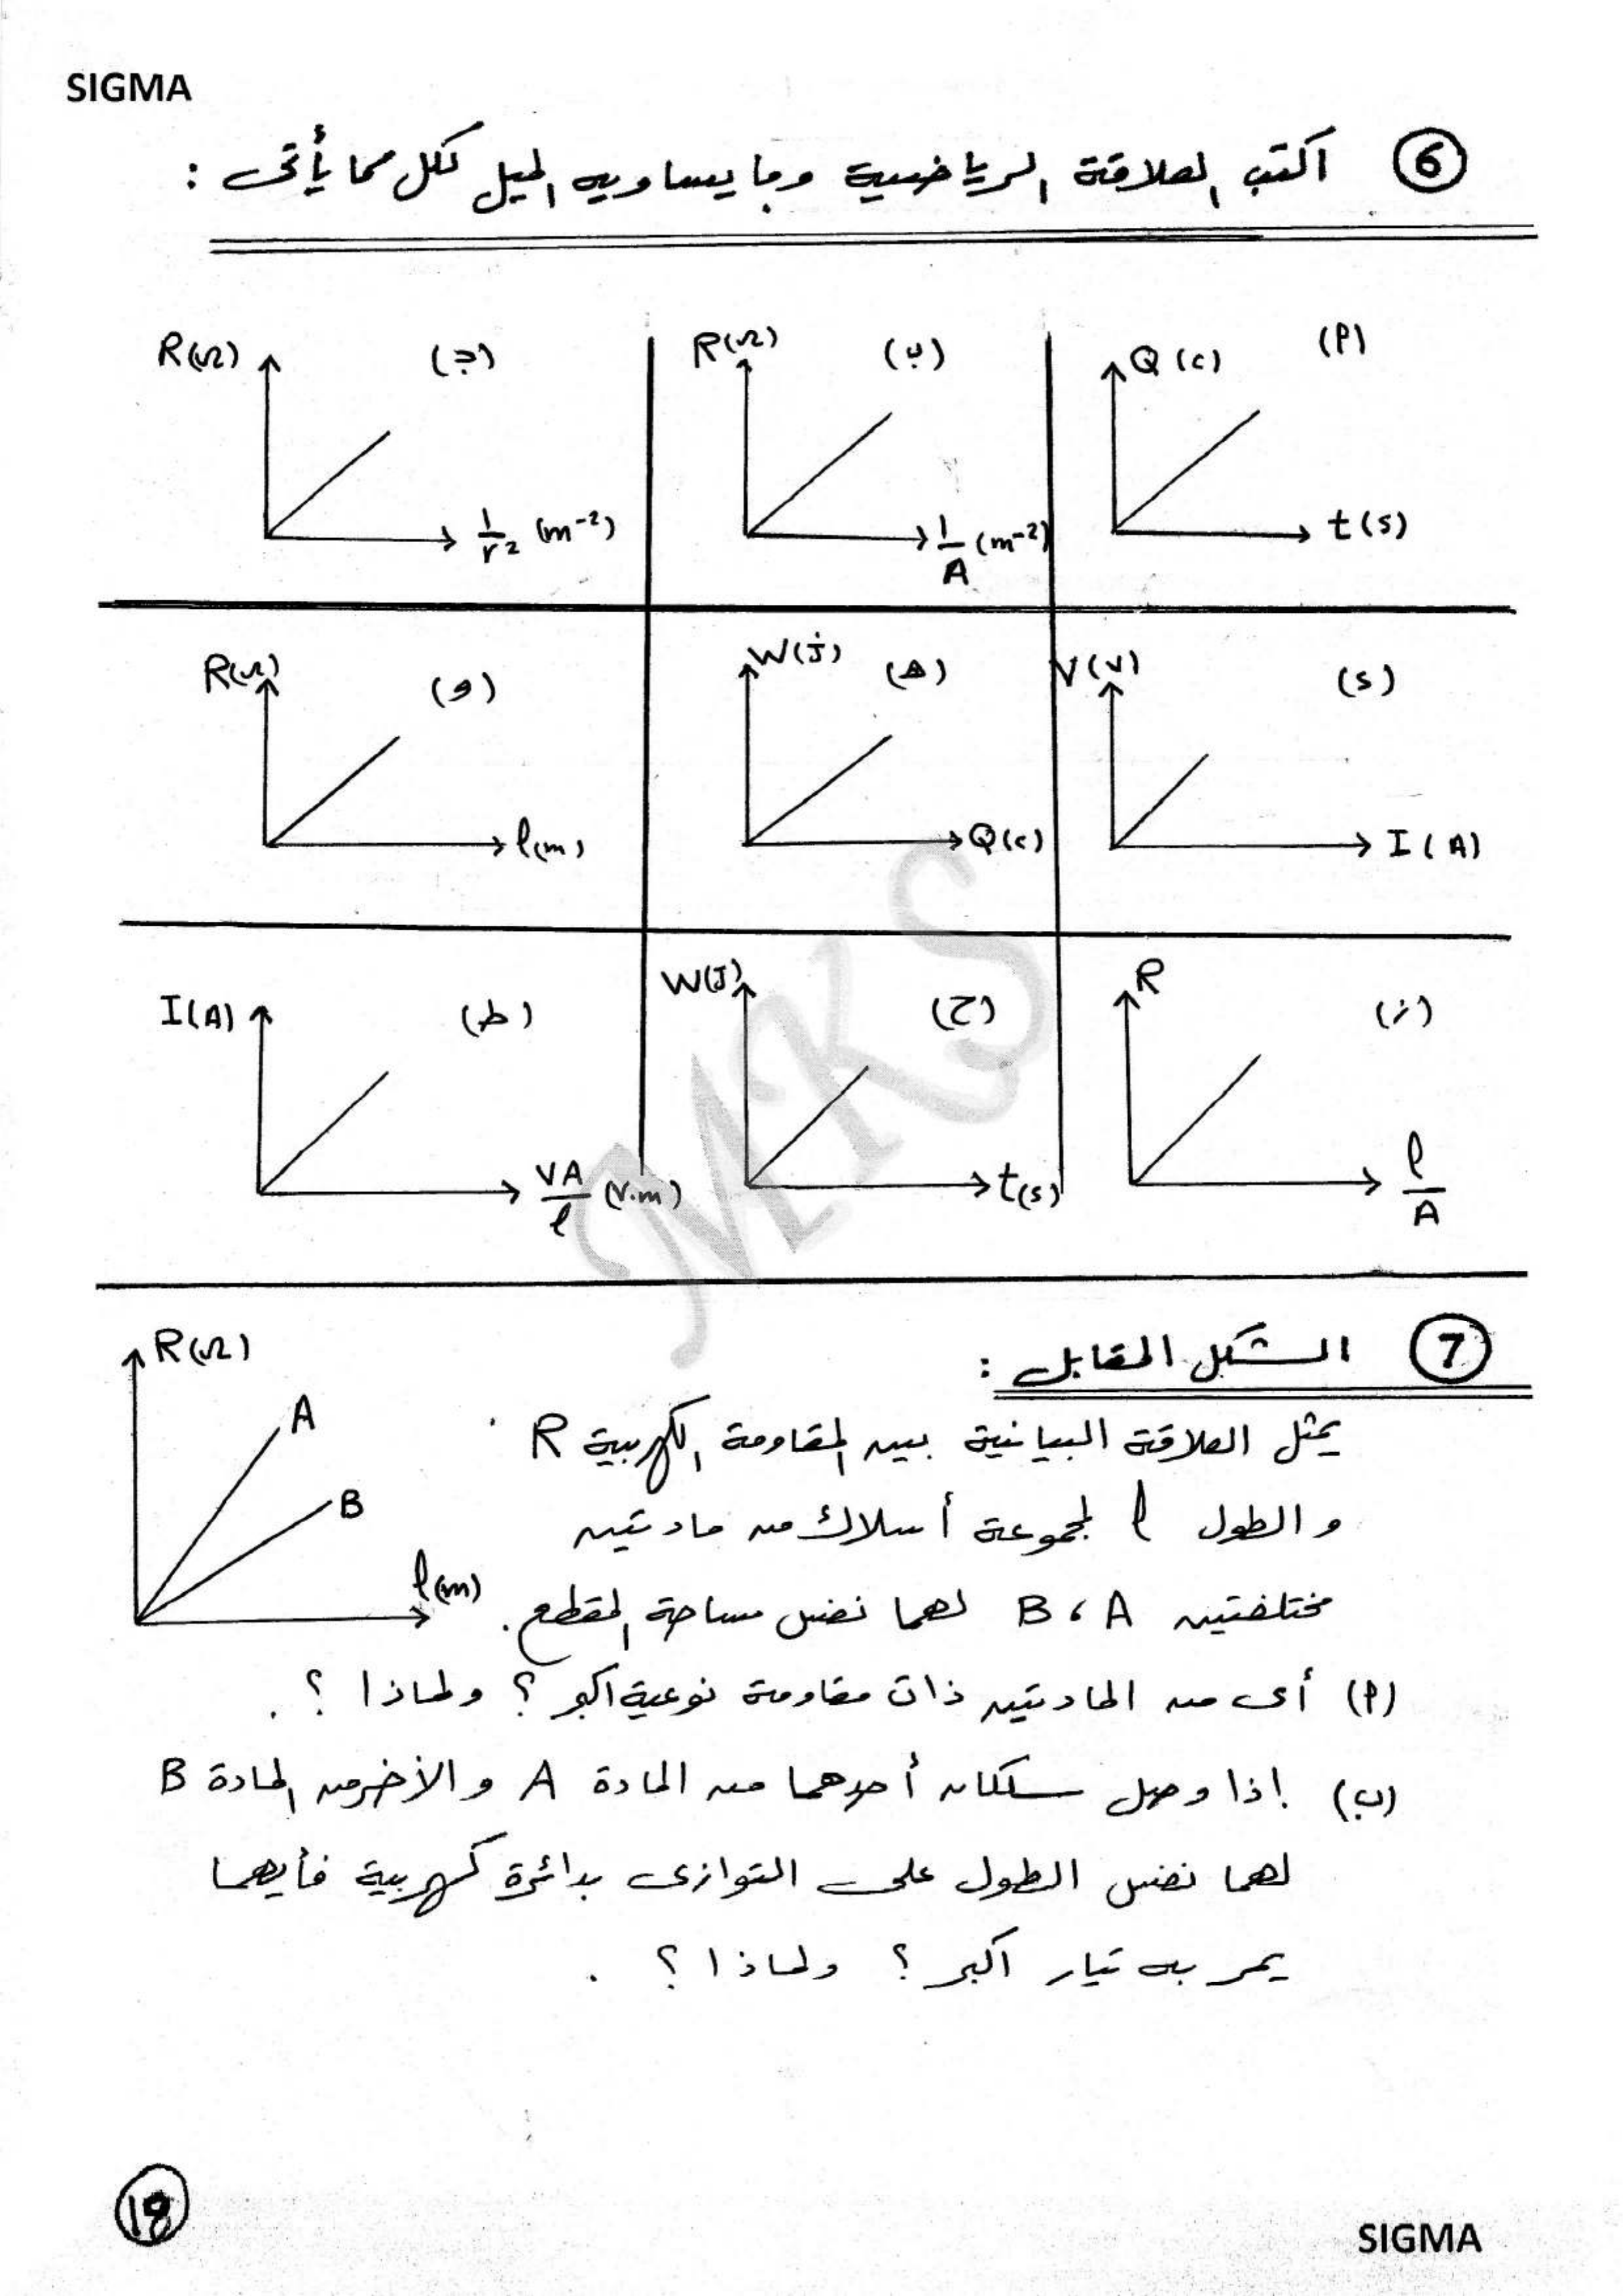 SIGMA
6 اكتب العلاقة الرياضية وما يساويه الميل لكل مما يأتى :
(أ) Q (c) t (s)
(ب) R(Ω) 1/A (m⁻²)
(ج) R(Ω) 1/r² (m⁻²)
(د) V (v) I (A)
(ه) W(j) Q(c)
(و) R(Ω) l(m)
(ز) R l/A
(ح) W(J) t(s)
(ط) I(A) VA/l (v.m)
MKS
7 الشكل المقابل :
R(Ω) A B l(m)
يمثل العلاقة البيانية بين المقاومة الكهربية R
والطول l لمجموعة أسلاك من مادتين
مختلفتين A ، B لهما نفس مساحة المقطع .
(أ) أى من المادتين ذات مقاومة نوعية اكبر ؟ ولماذا ؟ .
(ب) إذا وصل سلكان أحدهما من المادة A والأخر من المادة B
لهما نفس الطول على التوازى بدائرة كهربية فأيهما
يمر به تيار اكبر ؟ ولماذا ؟ .
18
SIGMA